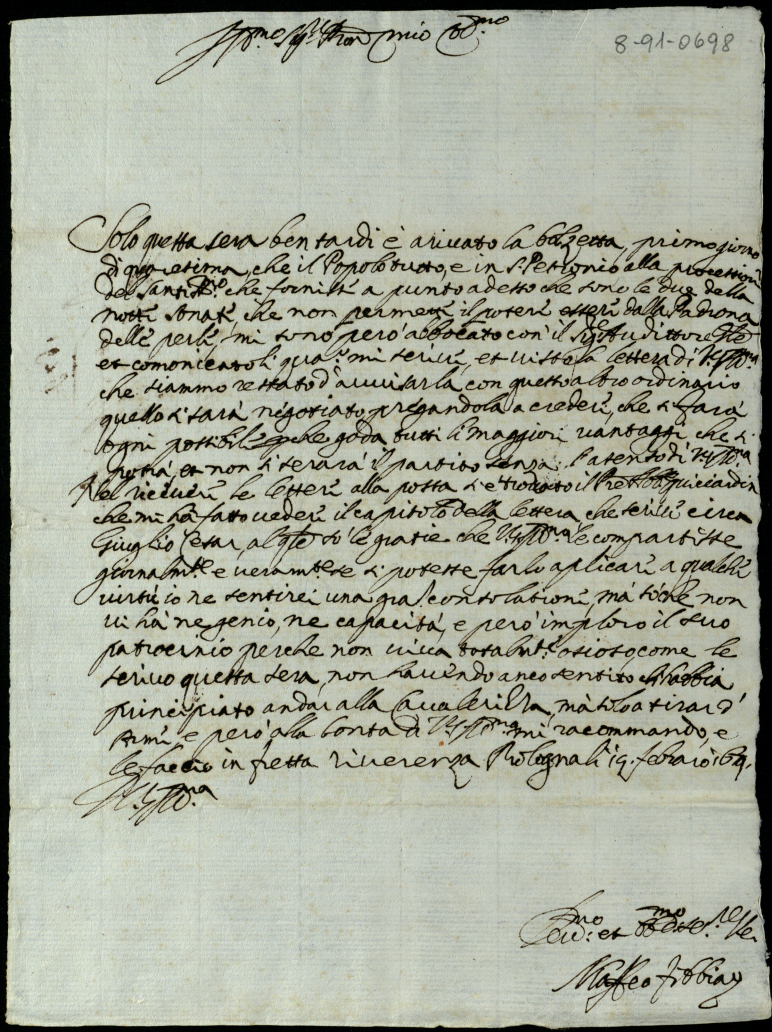 8-91-0698
Ill.mo Sig.re Pron mio Col.mo
Solo questa sera ben tardi è arivato la bolzetta, primo giorno
di quaresima, che il Popolo tutto, e in S. Petronio alla processione
del Sant.mo che fornisse a punto adesso che sono le due della
notte che non permette il potere essere dalla Padrona
delle perle, mi sono però abbocato con il Sig. Auditore
et comonicatoli quã mi scrive, et vista la lettera di V.S. Ill.ma
che siammo restato d'avvisarla con questo altro ordinario
quello si sarà negotiato pregandola a credere, che si farà
ogni possibile che goda tutti li maggiori vantaggi che si
potrà, et non si serarà il partito senza: l'asenso di V.S. Ill.ma
Nel ricevere le lettere alla posta si è trovato il Guicciardin
che mi hà fatto vedere il capitolo della lettera che scrive circa
Giuglio Cesar, al qle sò le gratie che V.S. Ill.ma le compartisse
giornalm.te e veram.te se si potesse farlo aplicare a qualche
virtù io ne sentirei una gra consolatione, mà sò che non
vi hà ne genio, ne capacità, e però imploro il suo
patrocinio perche non viva totalm.te osioso come le
scrivo questa sera, non havendo anco sentito ch'abbia
principiato andar alla Cavalerizza, mà solo a tirar d'
Armi e però alla bontà di V.S. Ill.ma mi racommando, e
le faccio in fretta riverenza Bologna li 19. febraro 169.
V.S. Ill.ma
Dev.mo et Obb.mo Se.re
Maffeo Fibbia